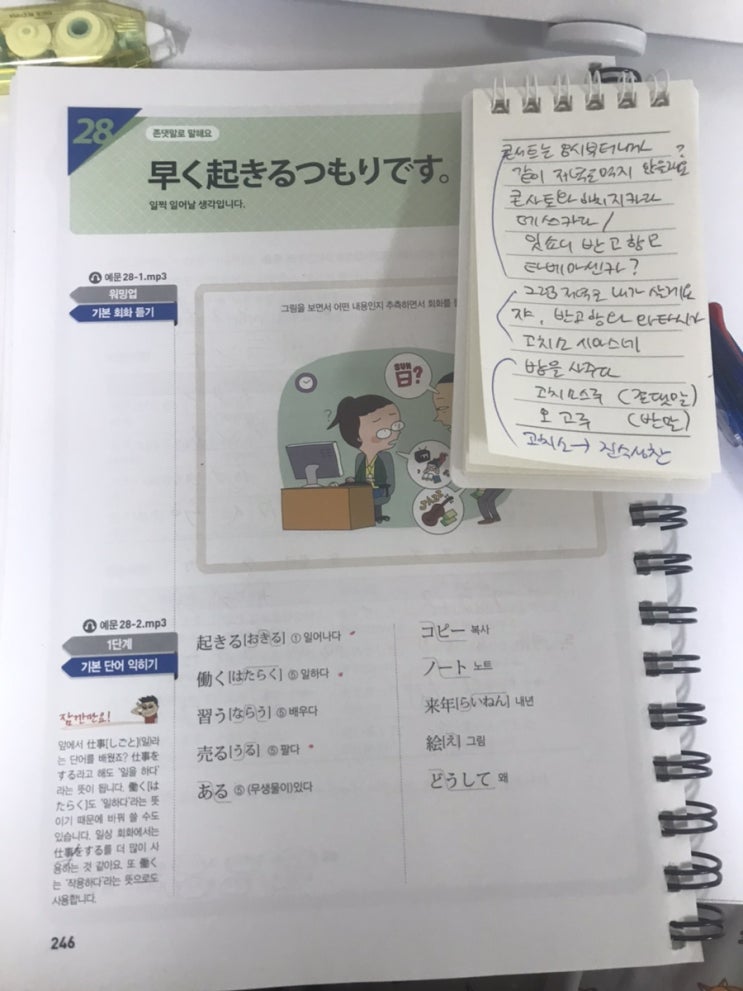 28
존댓말로 말해요
早く起きるつもりです。
일찍 일어날 생각입니다.
예문 28-1.mp3
워밍업
기본 회화 듣기
그림을 보면서 어떤 내용인지 추측하면서 회화를
SUN
日?
?
예문 28-2.mp3
1단계
기본 단어 익히기
起きる[おきる] ① 일어나다
働く[はたらく] ⑤ 일하다
習う[ならう] ⑤ 배우다
売る[うる] ⑤ 팔다
ある ⑤ (무생물이)있다
コピー 복사
ノート 노트
来年[らいねん] 내년
絵[え] 그림
どうして 왜
잠깐만요!
앞에서 仕事[しごと](일)라
는 단어를 배웠죠? 仕事を
する라고 해도 '일을 하다'
라는 뜻이 됩니다. 働く[は
たらく]도 '일하다'라는 뜻
이기 때문에 바꿔 쓸 수도
있습니다. 일상 회화에서는
仕事をする를 더 많이 사
용하는 것 같아요. 또 働く
는 '작용하다'라는 뜻으로도
사용합니다.
246
콘서트는 8시부터니까
같이 저녁을 먹지 않을래요?
콘사토와 하치지카라
데스카라/
잇쇼니 반고항오
타베마센카?
그럼 저녁은 내가 살게요
쟈, 반고항와 와타시가
고치소 시마스네
밥을 사주다
고치소스루 (존댓말)
오고루 (반말)
고치소→진수성찬